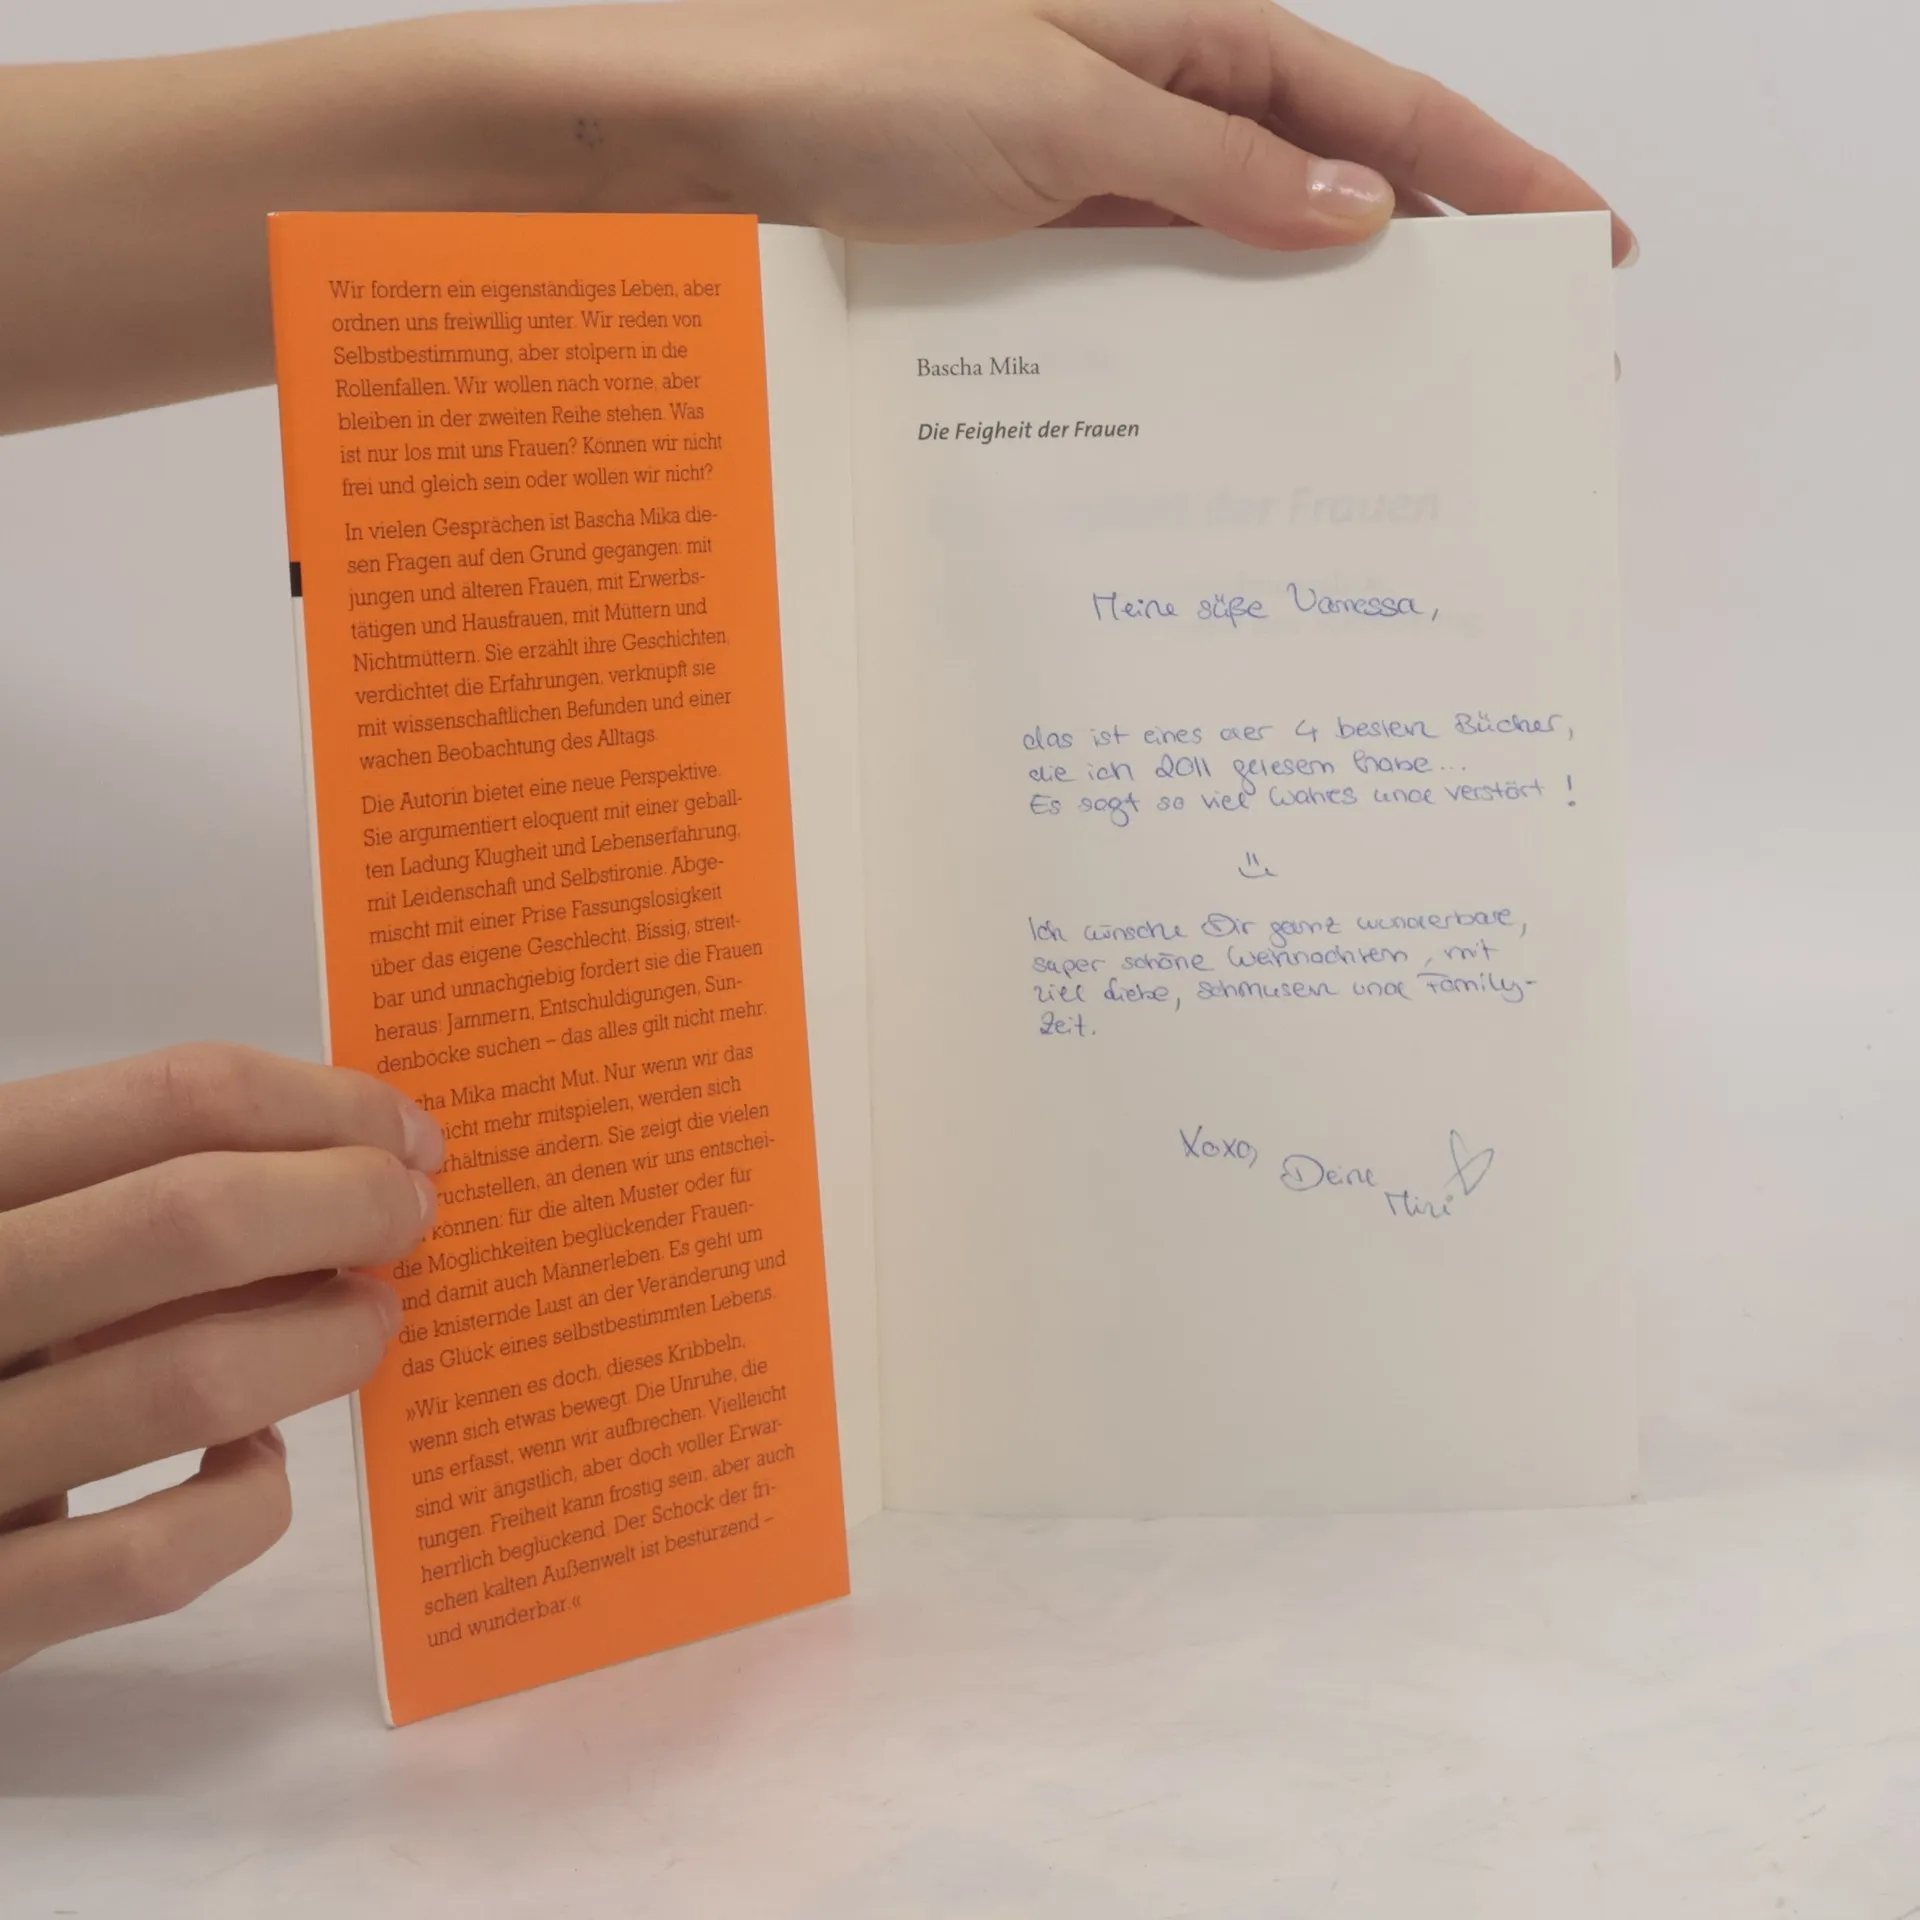 Wir fordern ein eigenständiges Leben, aber
ordnen uns freiwillig unter. Wir reden von
Selbstbestimmung, aber stolpern in die
Rollenfallen. Wir wollen nach vorne, aber
bleiben in der zweiten Reihe stehen. Was
ist nur los mit uns Frauen? Können wir nicht
frei und gleich sein oder wollen wir nicht?
In vielen Gesprächen ist Bascha Mika die-
sen Fragen auf den Grund gegangen: mit
jungen und älteren Frauen, mit Erwerbs-
tätigen und Hausfrauen, mit Müttern und
Nichtmüttern. Sie erzählt ihre Geschichten,
verdichtet die Erfahrungen, verknüpft sie
mit wissenschaftlichen Befunden und einer
wachen Beobachtung des Alltags.
Die Autorin bietet eine neue Perspektive.
Sie argumentiert eloquent mit einer geball-
ten Ladung Klugheit und Lebenserfahrung,
mit Leidenschaft und Selbstironie. Abge-
mischt mit einer Prise Fassungslosigkeit
über das eigene Geschlecht. Bissig, streit-
bar und unnachgiebig fordert sie die Frauen
heraus: Jammern, Entschuldigungen, Sün-
denböcke suchen – das alles gilt nicht mehr.
cha Mika macht Mut. Nur wenn wir das
icht mehr mitspielen, werden sich
rhältnisse ändern. Sie zeigt die vielen
ruchstellen, an denen wir uns entschei-
können: für die alten Muster oder für
die Möglichkeiten beglückender Frauen-
und damit auch Männerleben. Es geht um
die knisternde Lust an der Veränderung und
das Glück eines selbstbestimmten Lebens.
»Wir kennen es doch, dieses Kribbeln,
wenn sich etwas bewegt. Die Unruhe, die
uns erfasst, wenn wir aufbrechen. Vielleicht
sind wir ängstlich, aber doch voller Erwar-
tungen. Freiheit kann frostig sein, aber auch
herrlich beglückend. Der Schock der fri-
schen kalten Außenwelt ist bestürzend –
und wunderbar.«
Bascha Mika
Die Feigheit der Frauen
der Frauen
Meine süße Vanessa,
das ist eines der 4 besten Bücher,
die ich 2011 gelesen habe...
Es sagt so viel Wahres und verstört!
Ich wünsche Dir ganz wunderbare,
super schöne Weihnachten, mit
viel Liebe, schmusen und Family-
Zeit.
Xoxo,
Deine
Miri